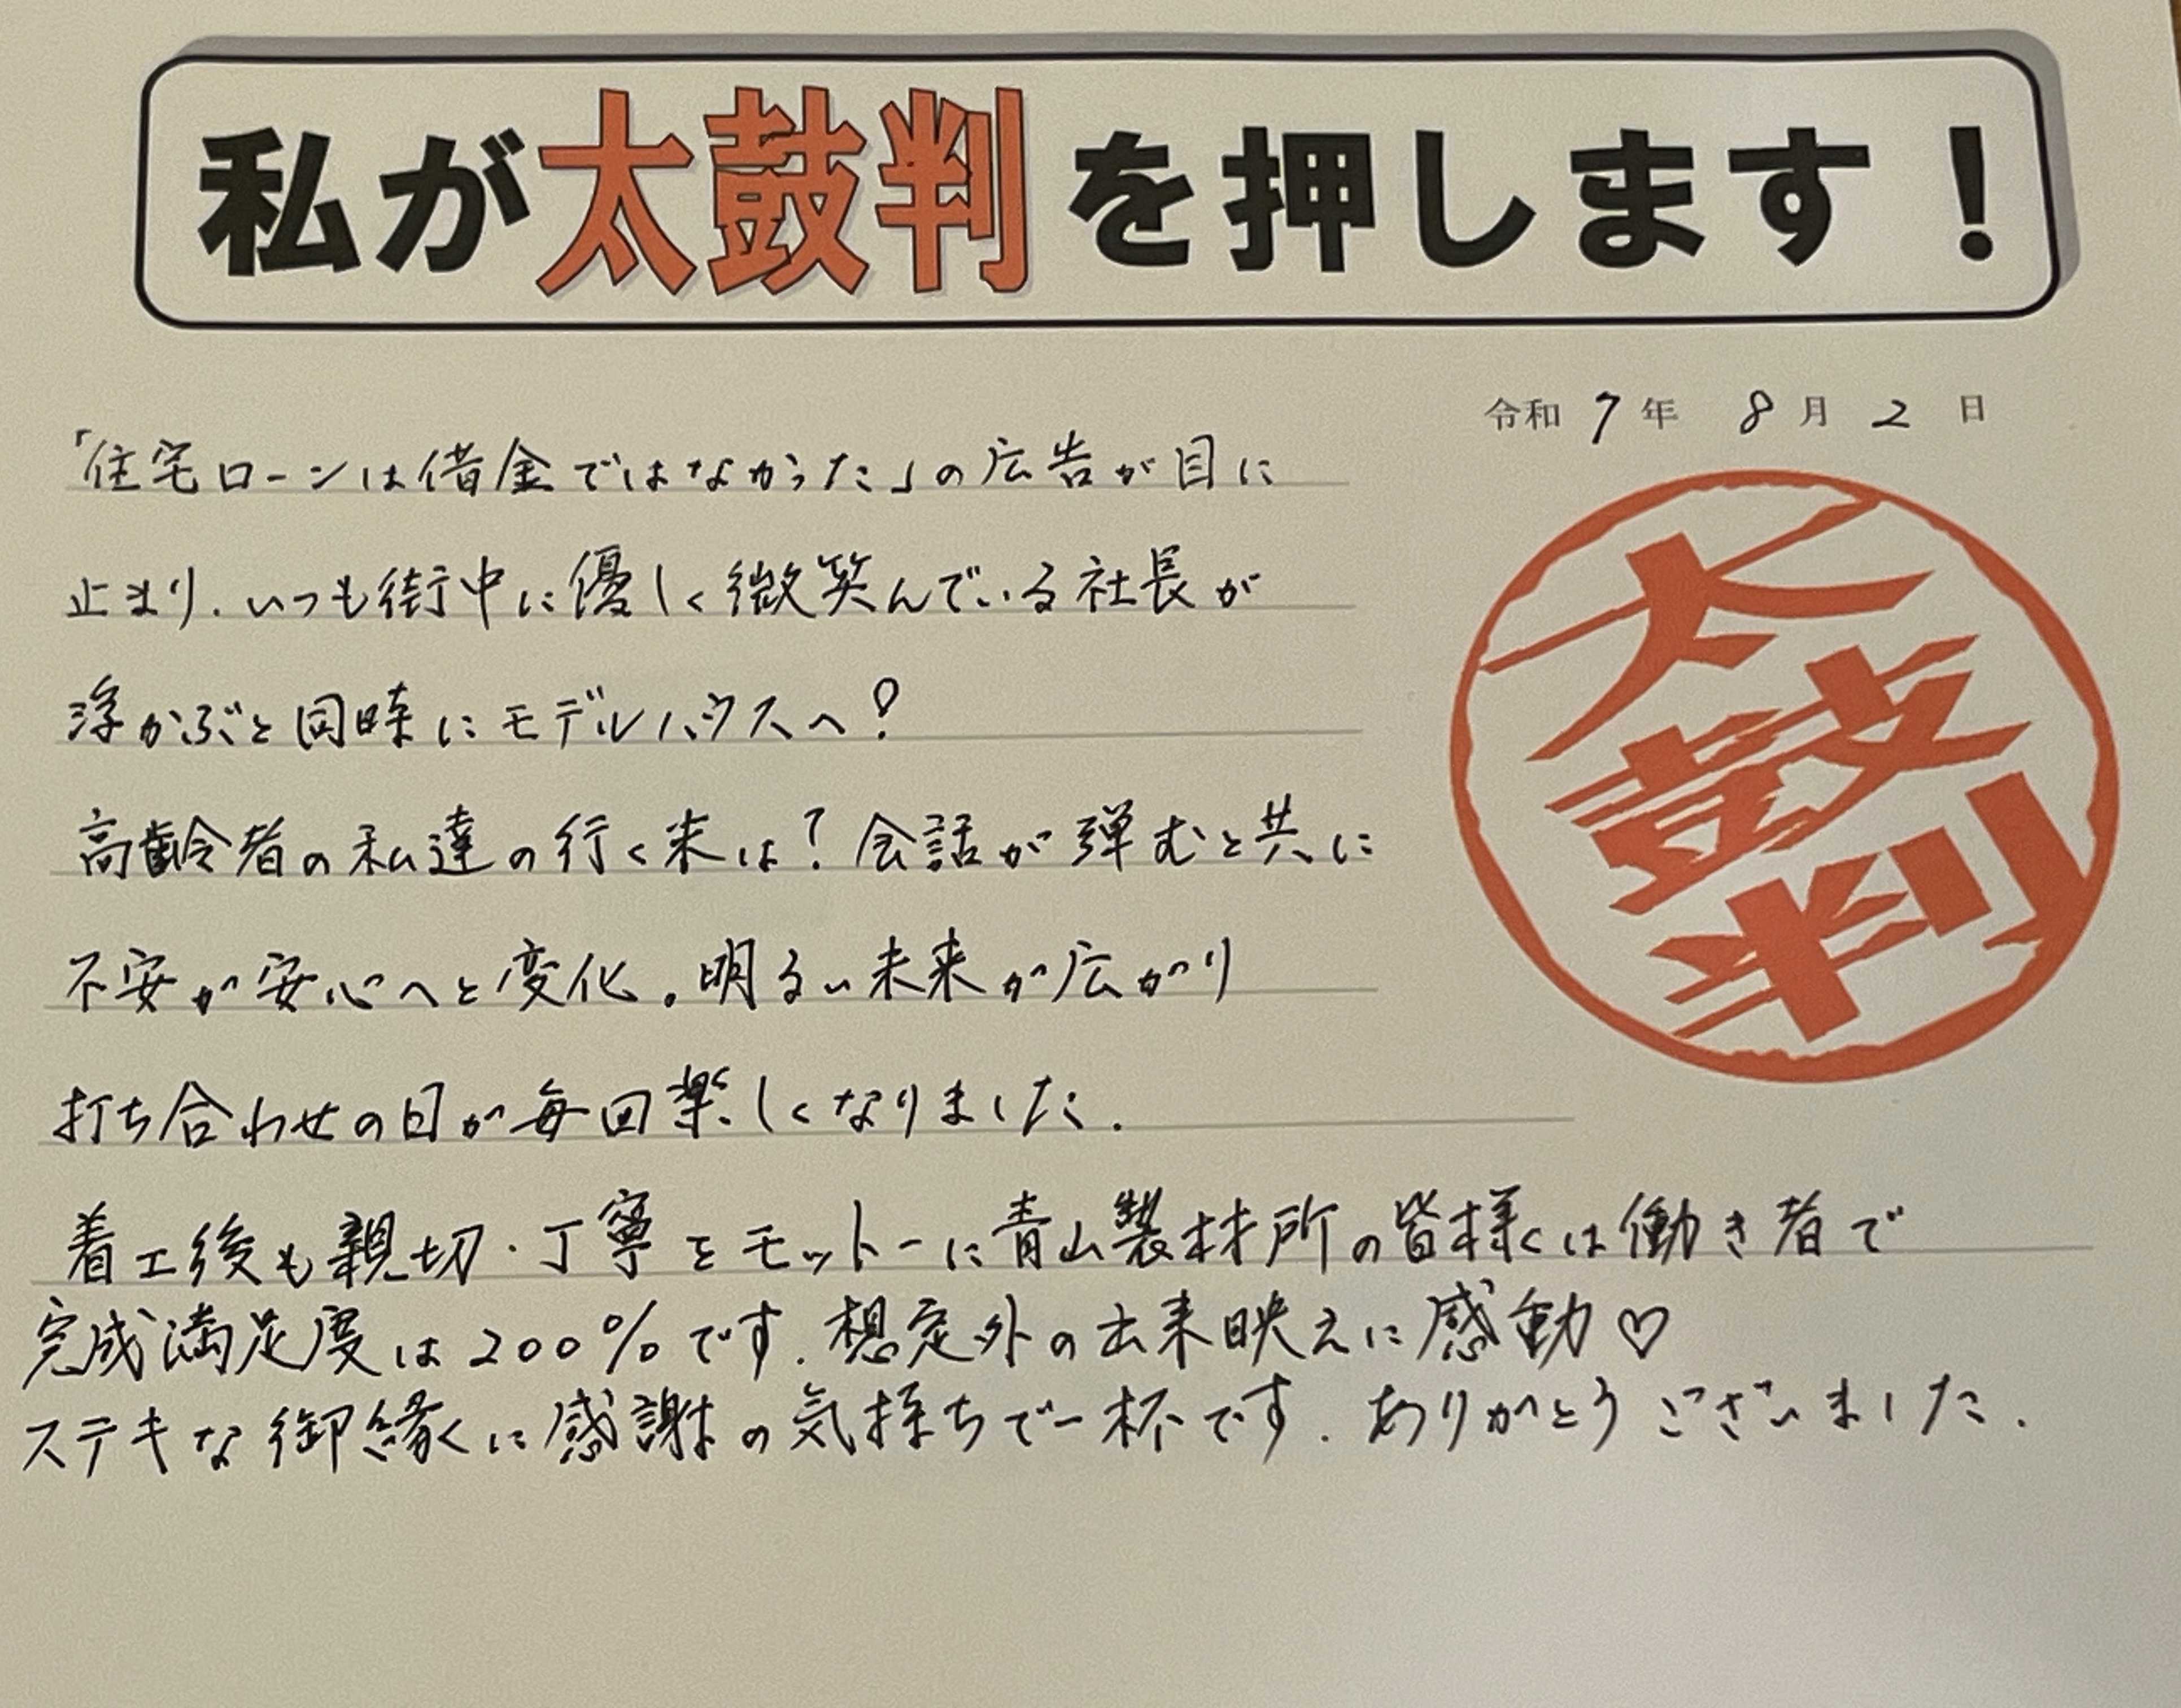 私が太鼓判を押します！
令和 7 年 8 月 2 日
「住宅ローンは借金ではなかった」の広告が目に
止まり、いつも街中に優しく微笑んでいる社長が
浮かぶと同時にモデルハウスへ！
高齢者の私達の行く末は？会話が弾むと共に
不安が安心へと変化。明るい未来が広がり
打ち合わせの日が毎回楽しくなりました。
太鼓判
着工後も親切・丁寧をモットーに青山製材所の皆様は働き者で
完成満足度は200%です。想定外の出来映えに感動♡
ステキな御縁に感謝の気持ちで一杯です。ありがとうございました。